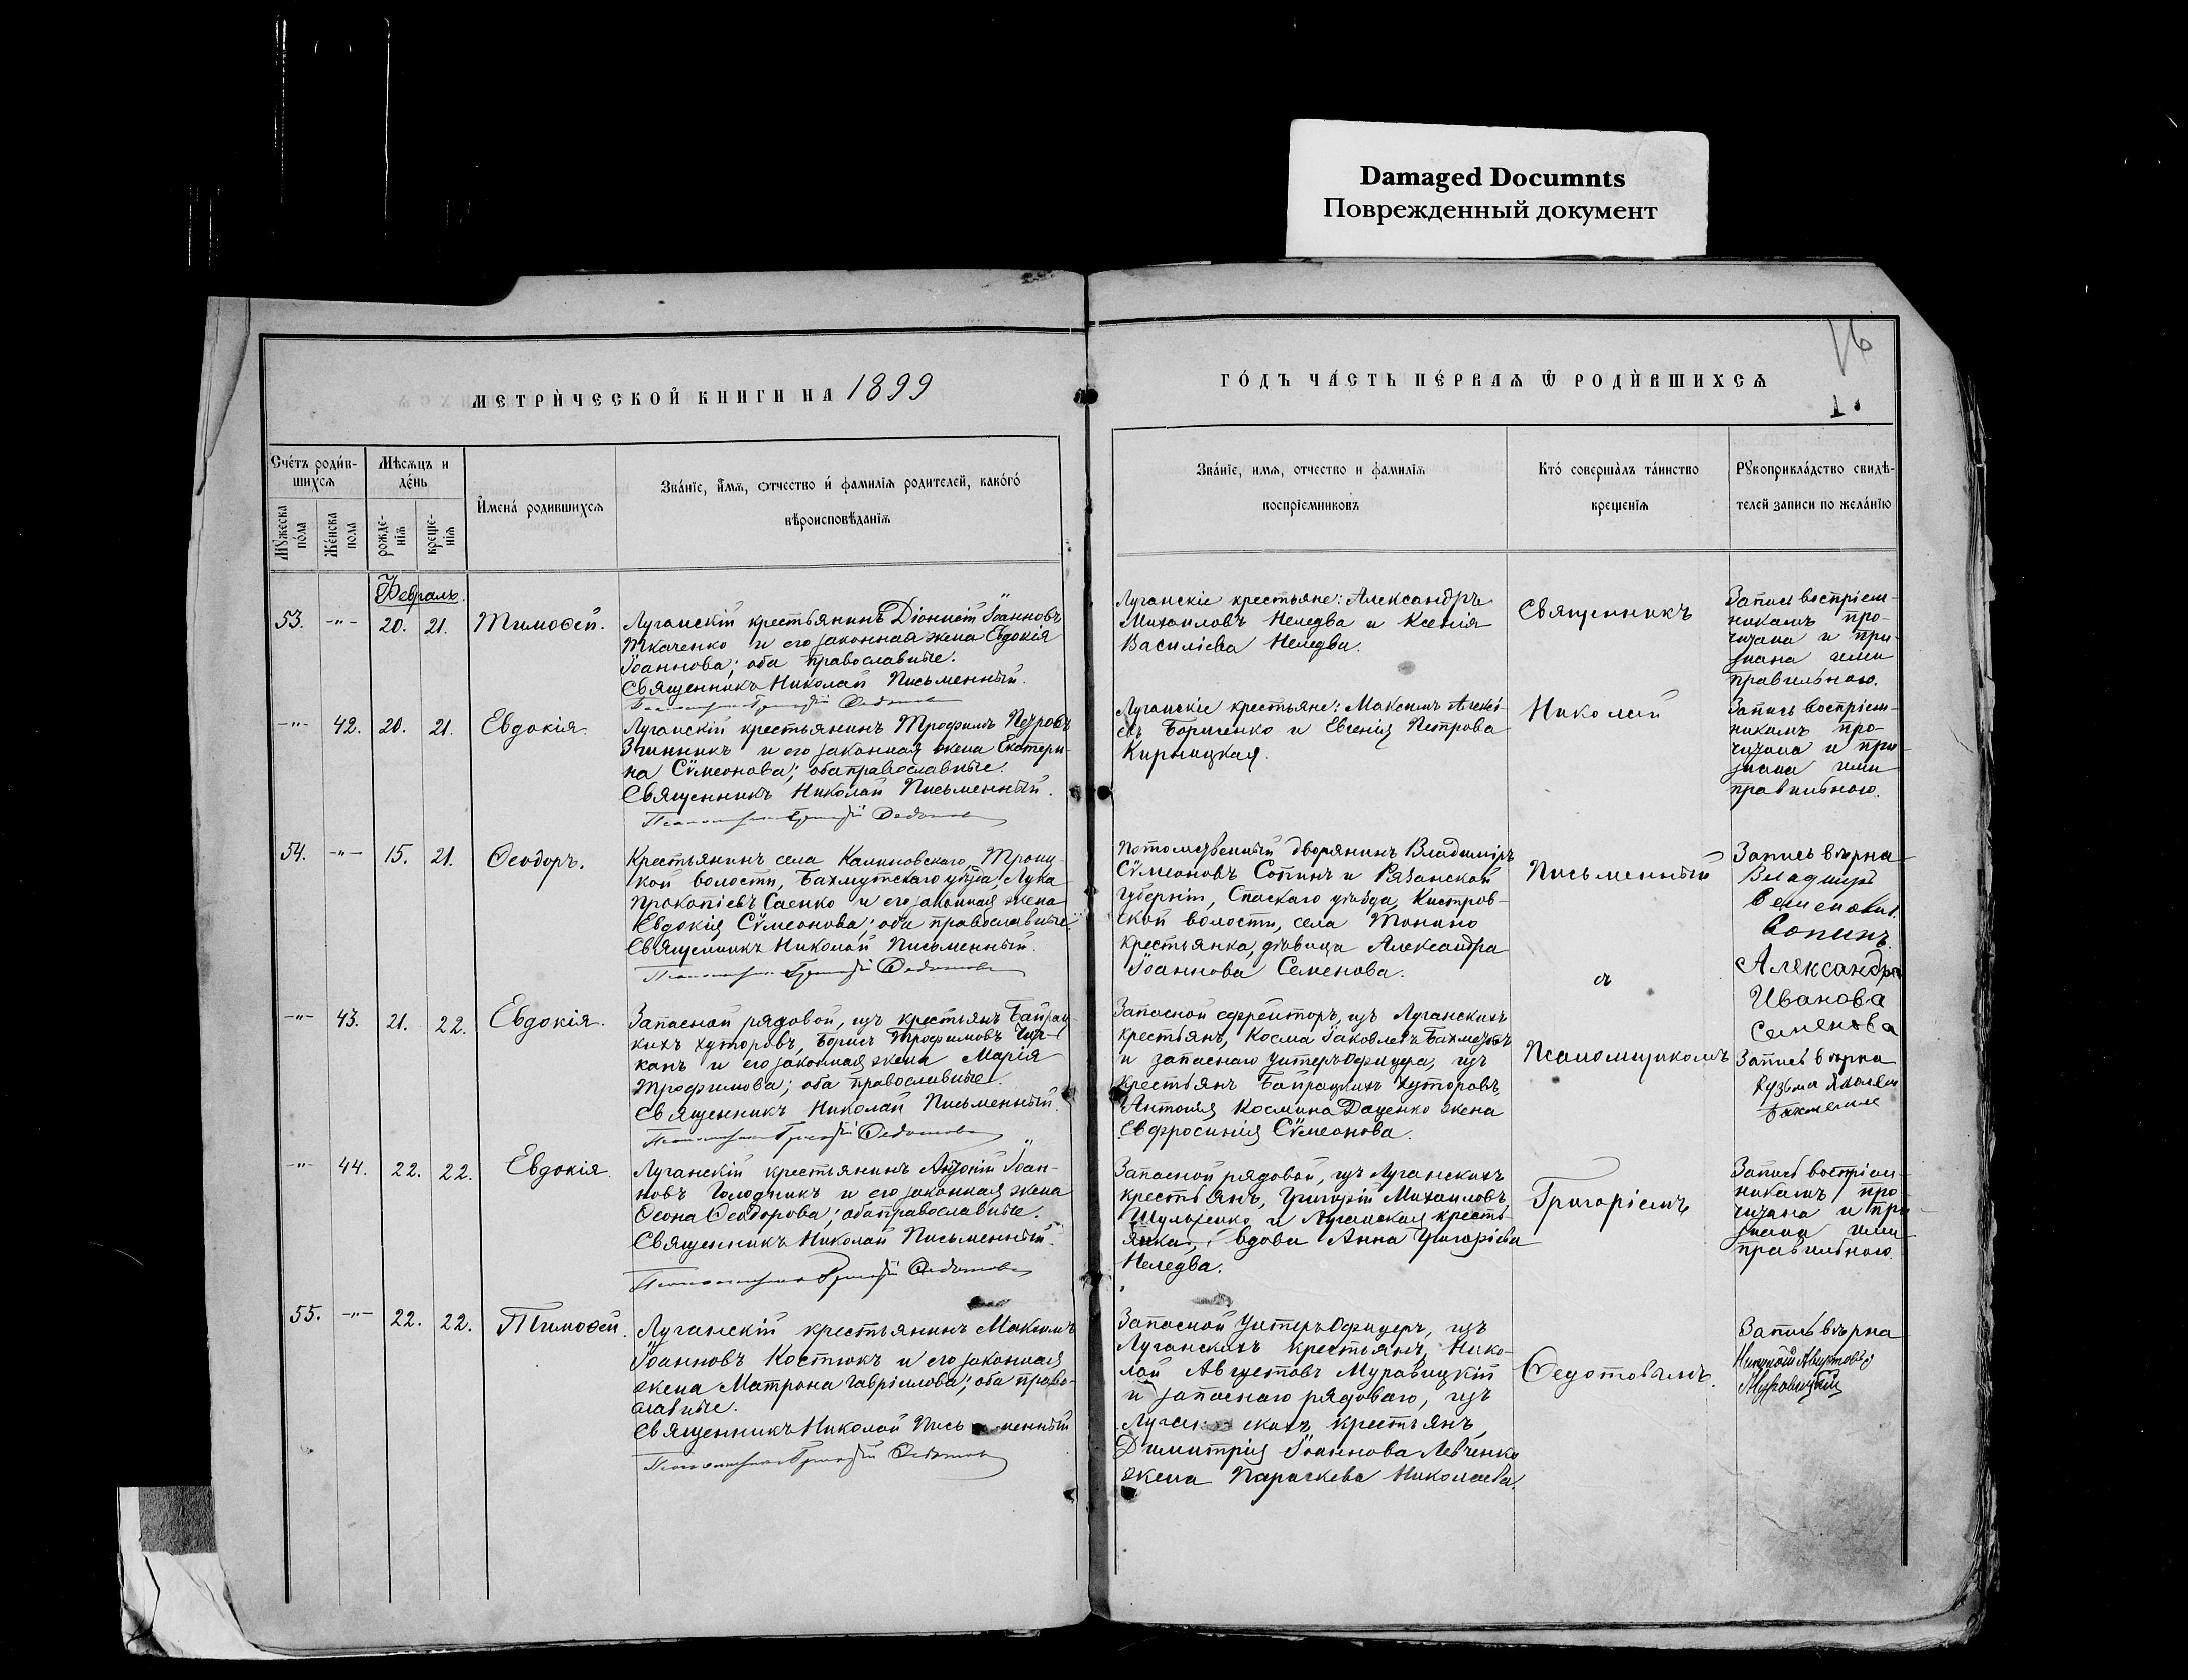 Damaged Documnts
Поврежденный документ
16
МЕТРИ́ЧЕСКОЙ КНИГИ НА 1899
ГО́ДЪ ЧА́СТЬ ПЕ́РВАѦ Ѿ РОДИ́ВШИХСѦ
Сче́тъ роди́в-
шихсѧ
Мѣсѧцъ и
де́нь
Му́жеска по́ла
Же́нска пола
рожде-
нїѧ
креще-
нїѧ
И҆мена́ родившихсѧ
Зва́нїе, и҆́мѧ, ѻтчество и҆ фамилїѧ родителей, како́го́
вѣроисповѣ́данїѧ
Зва́нїе, имѧ, отчество и фамилїѧ
воспрїемниковъ
Кто́ соверша́лъ та́инство
крещенїѧ
Рꙋкоприкла́дство свидѣ-
телей записи по жела́нїю
Февраль.
53. -"- 20. 21. Тимоѳей.
Луганскій крестьянинъ Діонисій Іоанновъ
Ткаченко и его законная жена Евдокія
Іоаннова; оба православные.
Священникъ Николай Письменный.
Луганскіе крестьяне: Александръ
Михаиловъ Неледва и Ксенія
Василіева Неледва.
Священникъ
Запись воспріем-
никамъ про-
читана и при-
знана ими
правильною.
-"- 42. 20. 21. Евдокія.
Луганскій крестьянинъ Трофимъ Петровъ
и его законная жена Екатери-
на Сѵмеонова; оба православные.
Священникъ Николай Письменный.
Луганскіе крестьяне: Максимъ Алексі-
евъ Борисенко и Евгенія Петрова
Кирницкая.
Николай
Запись воспріем-
никамъ про-
читана и при-
знана ими
правильною.
54. -"- 15. 21. Ѳеодоръ.
Крестьянинъ села Калиновскаго, Троиц-
кой волости, Бахмутскаго уѣзда, Лука
Прокопіевъ Саенко и его законная жена
Евдокія Сѵмеонова; оба православные.
Священникъ Николай Письменный.
Потомственный дворянинъ Владиміръ
Сѵмеоновъ Сопинъ и Рязанской
губерніи, Спаскаго уѣзда, Кистров-
ской волости, села Тонино
крестьянка, дѣвица Александра
Іоаннова Семенова.
Письменный
съ
Запись вѣрна
Владиміръ
Семеновичъ
Сопинъ.
Александра
Иванова
Семенова
-"- 43. 21. 22. Евдокія.
Запасной рядовой, изъ крестьянъ Байрац-
кихъ хуторовъ, Борисъ Трофимовъ
и его законная жена Марія
Трофимова; оба православные.
Священникъ Николай Письменный.
Запасной ефрейторъ, изъ Луганскихъ
крестьянъ, Косма Іаковлевъ
и запаснаго унтеръ-офицера, изъ
крестьянъ Байрацкихъ хуторовъ,
Антонія Космина Даценко жена
Евфросинія Сѵмеонова.
Псаломщикомъ
Запись вѣрна
-"- 44. 22. 22. Евдокія.
Луганскій крестьянинъ Антоній Іоан-
новъ Голодникъ и его законная жена
Ѳеона Ѳеодорова; оба православные.
Священникъ Николай Письменный.
Запасной рядовой, изъ Луганскихъ
крестьянъ, Григорій Михаиловъ
Шульженко и Луганская кресть-
янка, вдова Анна Григоріева
Неледва.
Григоріемъ
Запись воспріем-
никамъ про-
читана и при-
знана ими
правильною.
55. -"- 22. 22. Тимоѳей.
Луганскій крестьянинъ Максимъ
Іоанновъ Костюкъ и его законная
жена Матрона Гавріилова; оба право-
славные.
Священникъ Николай Письменный
Запасной унтеръ-офицеръ, изъ
Луганскихъ крестьянъ, Нико-
лай Августовъ Муравицкій
и запаснаго рядоваго, изъ
Луганскихъ крестьянъ,
Димитрія Іоаннова Левченко
жена Параскева Николаева.
Ѳедотовымъ.
Запись вѣрна
Николай Августовъ
Муравицкій